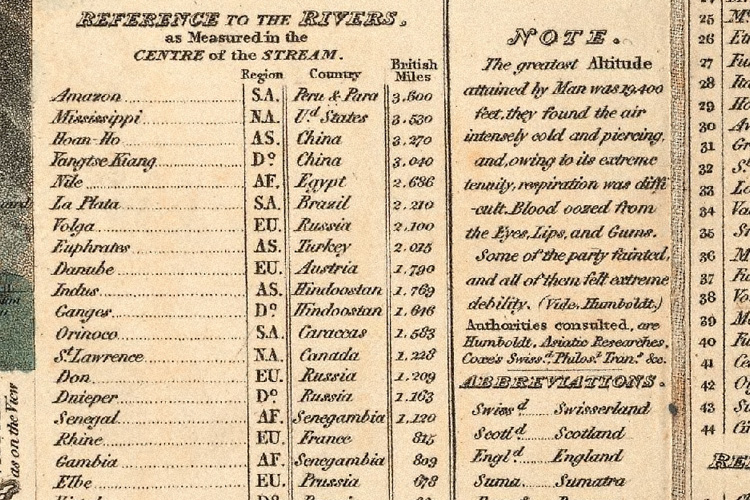 REFERENCE TO THE RIVERS,
as Measured in the
CENTRE of the STREAM.
Region Country British Miles
Amazon S.A. Peru & Para 3.600
Mississippi N.A. Ud States 3.530
Hoan-Ho AS. China 3.270
Yangtse Kiang Do China 3.040
Nile AF. Egypt 2.686
La Plata S.A. Brazil 2.210
Volga EU. Russia 2.100
Euphrates AS. Turkey 2.015
Danube EU. Austria 1.790
Indus AS. Hindoostan 1.769
Ganges Do Hindoostan 1.646
Orinoco S.A. Caraccas 1.583
St Lawrence N.A. Canada 1.228
Don EU. Russia 1.209
Dnieper Do Russia 1.163
Senegal AF. Senegambia 1.120
Rhine EU. France 815
Gambia AF. Senegambia 809
Elbe EU. Prussia 678
NOTE.
The greatest Altitude
attained by Man was 19.400
feet, they found the air
intensely cold and piercing,
and, owing to its extreme
tenuity, respiration was diffi
-cult. Blood oozed from
the Eyes, Lips, and Gums.
Some of the party fainted,
and all of them felt extreme
debility. (Vide, Humboldt.)
Authorities consulted, are
Humboldt. Asiatic Researches.
Coxe's Swiss.d Philos.l Tran.s &c.
ABBREVIATIONS.
Swiss d Swisserland
Scotl d Scotland
Engl d England
Suma. Sumatra
25
26
27
28
29
30
31
32
33
34
35
36
37
38
39
40
41
42
43
44
as on the View